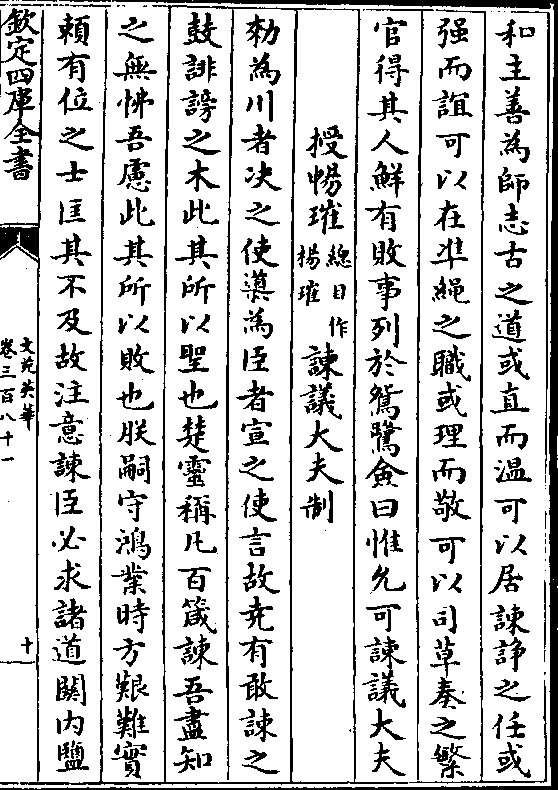 和主善為師志古之道或直而温可以居諫諍之任或
强而誼可以在凖繩之職或理而敬可以司草奏之繁
官得其人鮮有敗事列於鴛鷺僉曰惟允可諫議大夫
授暢璀總目作楊璀諫議大夫制
勑為川者决之使導為臣者宣之使言故堯有敢諫之
鼓誹謗之木此其所以聖也楚靈稱凡百箴諫吾盡知
之無怫吾慮此其所以敗也朕嗣守鴻業時方艱難實
頼有位之士匡其不及故注意諫臣必求諸道關内鹽
欽定四庫全書
文苑英華
卷三百八十一
十